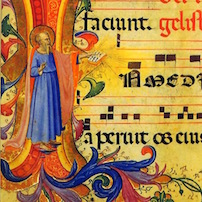 faciunt. gelist
N MEDI
a peruit os eius